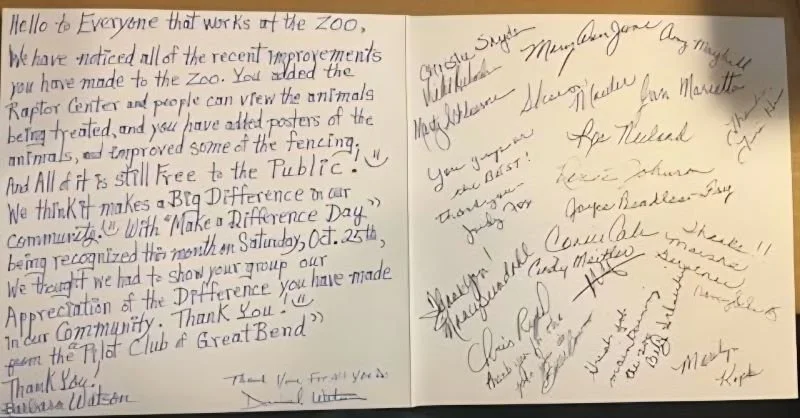 Hello to Everyone that works at the ZOO,
We have noticed all of the recent improvements
you have made to the ZOO. You added the
Raptor Center and people can view the animals
being treated, and you have added posters of the
animals, and improved some of the fencing.
And All of it is still Free to the Public!
We think it makes a Big Difference in our
community! With "Make a Difference Day"
being recognized this month on Saturday, Oct. 25th,
We thought we had to show your group our
Appreciation of the Difference you have made
in our Community. Thank You!
from the "Pilot Club of Great Bend"
Thank You!
Barbara Watson
Thank You For All you Do
Christie Snyder
Mary Ann June
Amy Mayhill
Sharon
Ann Marietta
You guys are
the BEST!
thank you
Judy Fox
Roxie Johnson
Joyce
Connie Cale
Thanks!!
Marsha
Thank you!
Cindy Meitler
Chris
Thank you for the
maintaining
the zoo
Marilyn